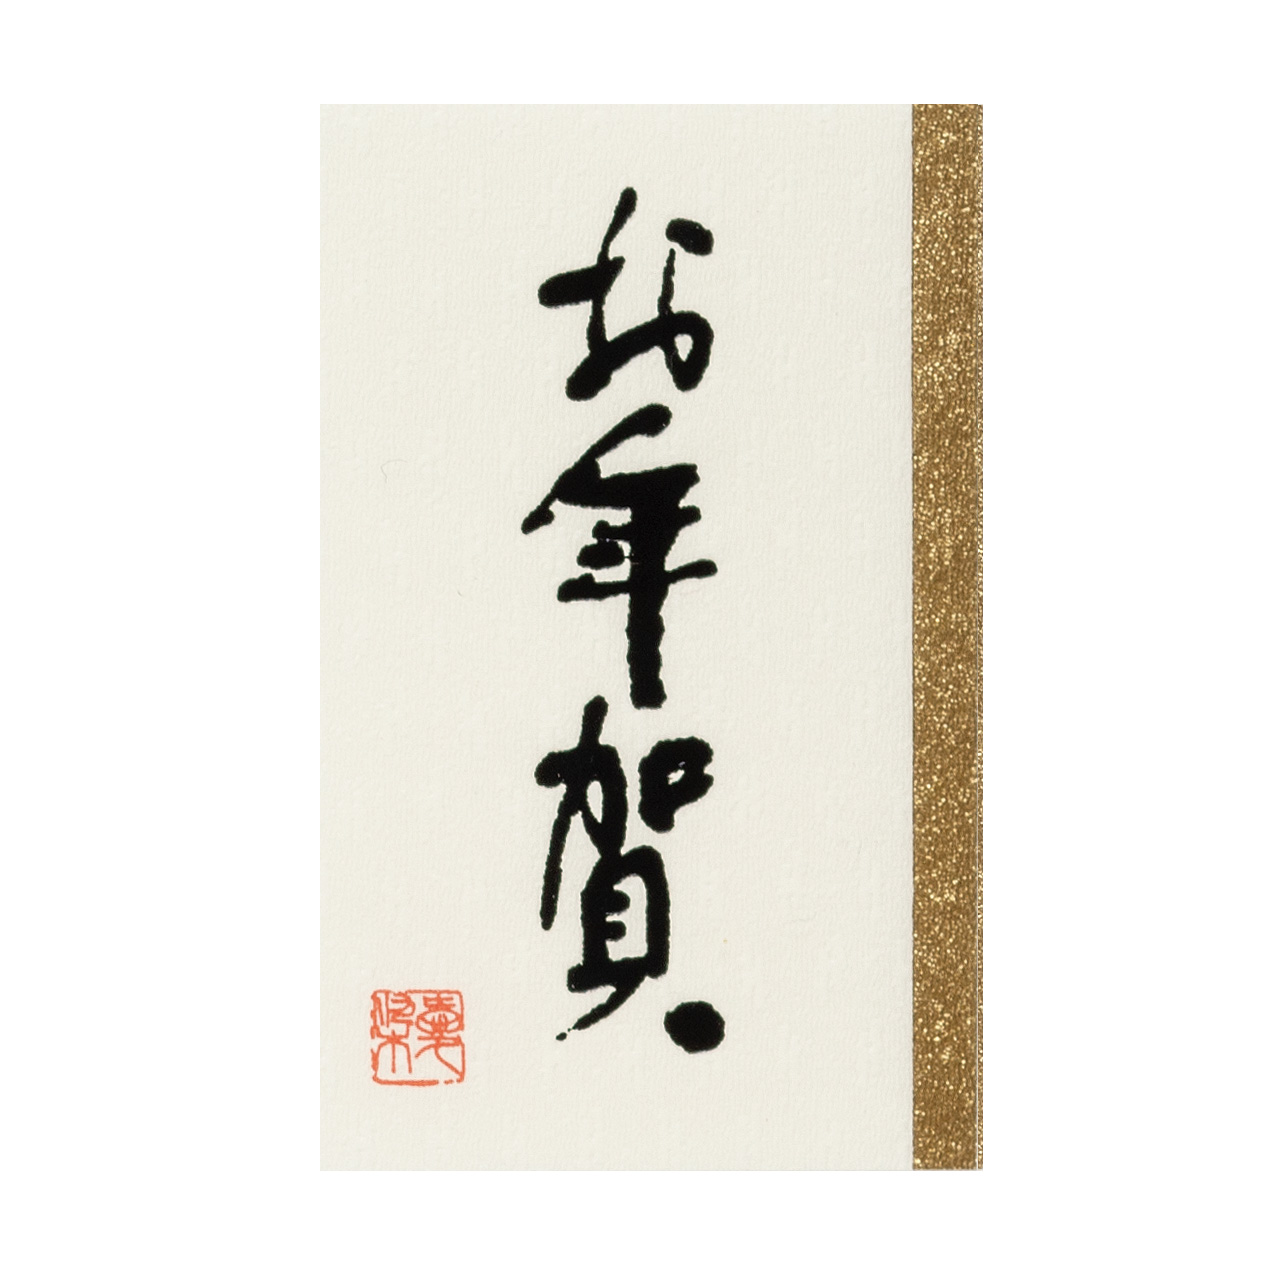 お年賀